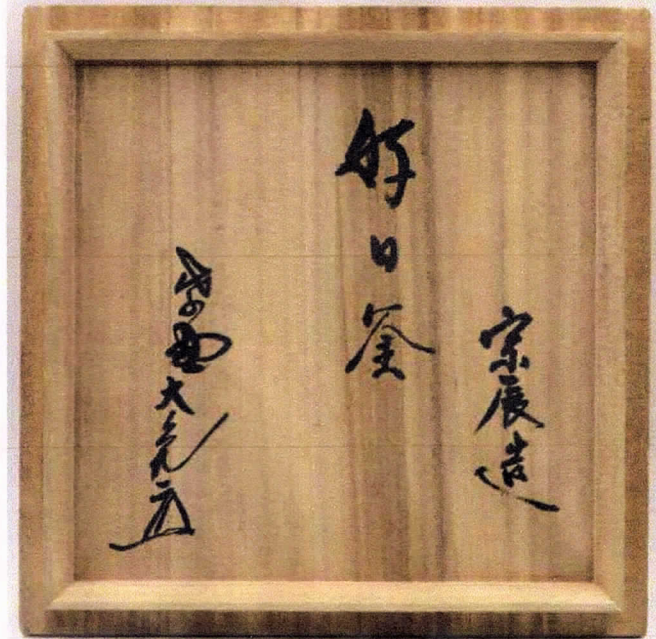 宗展造
好日釜
紫野 大亀